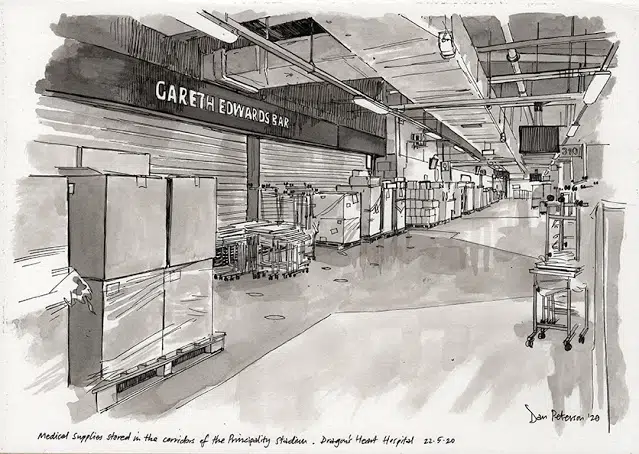 GARETH EDWARDS BAR
Dan Peterson '20
Medical supplies stored in the corridors of the Principality stadium. Dragon's Heart Hospital 22.5.20